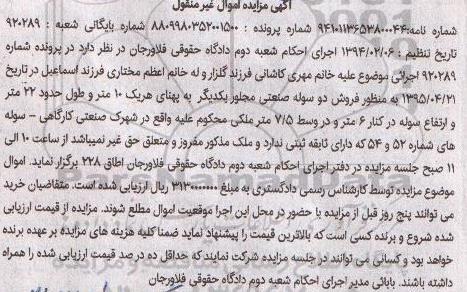 آگهی مزایده اموال غیر منقول
شماره نامه:۹۴۱۰۱۱۳۶۵۳۸۰۰۰۴۴ شماره پرونده : ۸۸۰۹۹۸۰۳۵۲۰۰۱۵۰۰ شماره بایگانی شعبه : ۹۲۰۲۸۹
تاریخ تنظیم : ۱۳۹۴/۰۲/۰۶ اجرای احکام شعبه دوم دادگاه حقوقی فلاورجان در نظر دارد در پرونده شماره
۹۲۰۲۸۹ اجرائی موضوع علیه خانم مهری کاشانی فرزند گلنار و له خانم اعظم مختاری فرزند اسماعیل در تاریخ
۱۳۹۵/۰۴/۲۱ به منظور فروش دو سوله صنعتی مجاور یکدیگر به پهنای هریک ۱۰ متر و طول حدود ۲۲ متر
و ارتفاع سوله در کنار ۶ متر و در وسط ۷/۵ متر ملکی محکوم علیه واقع در شهرک صنعتی کارگاهی - سوله
های شماره ۵۲ و ۵۴ که دارای ثابقه ثبتی ندارد و ملک مذکور مفروز و متعلق حق غیر نمیباشد از ساعت ۱۰ الی
۱۱ صبح جلسه مزایده در دفتر اجرای احکام شعبه دوم دادگاه حقوقی فلاورجان اطاق ۲۲۸ برگزار نماید. اموال
موضوع مزایده توسط کارشناس رسمی دادگستری به مبلغ ۳۱۳۰۰۰۰۰۰۰ ریال ارزیابی شده است. متقاضیان خرید
می توانند پنج روز قبل از مزایده با حضور در محل این اجرا موقعیت اموال مطلع شوند. مزایده از قیمت ارزیابی
شده شروع و برنده کسی است که بالاترین قیمت را پیشنهاد نماید ضمنا کلیه هزینه های مزایده بر عهده برنده
خواهد بود و کسانی می توانند در جلسه مزایده شرکت نمایند که حداقل ده در صد قیمت ارزیابی شده را همراه
داشته باشند. بابائی مدیر اجرای احکام شعبه دوم دادگاه حقوقی فلاورجان